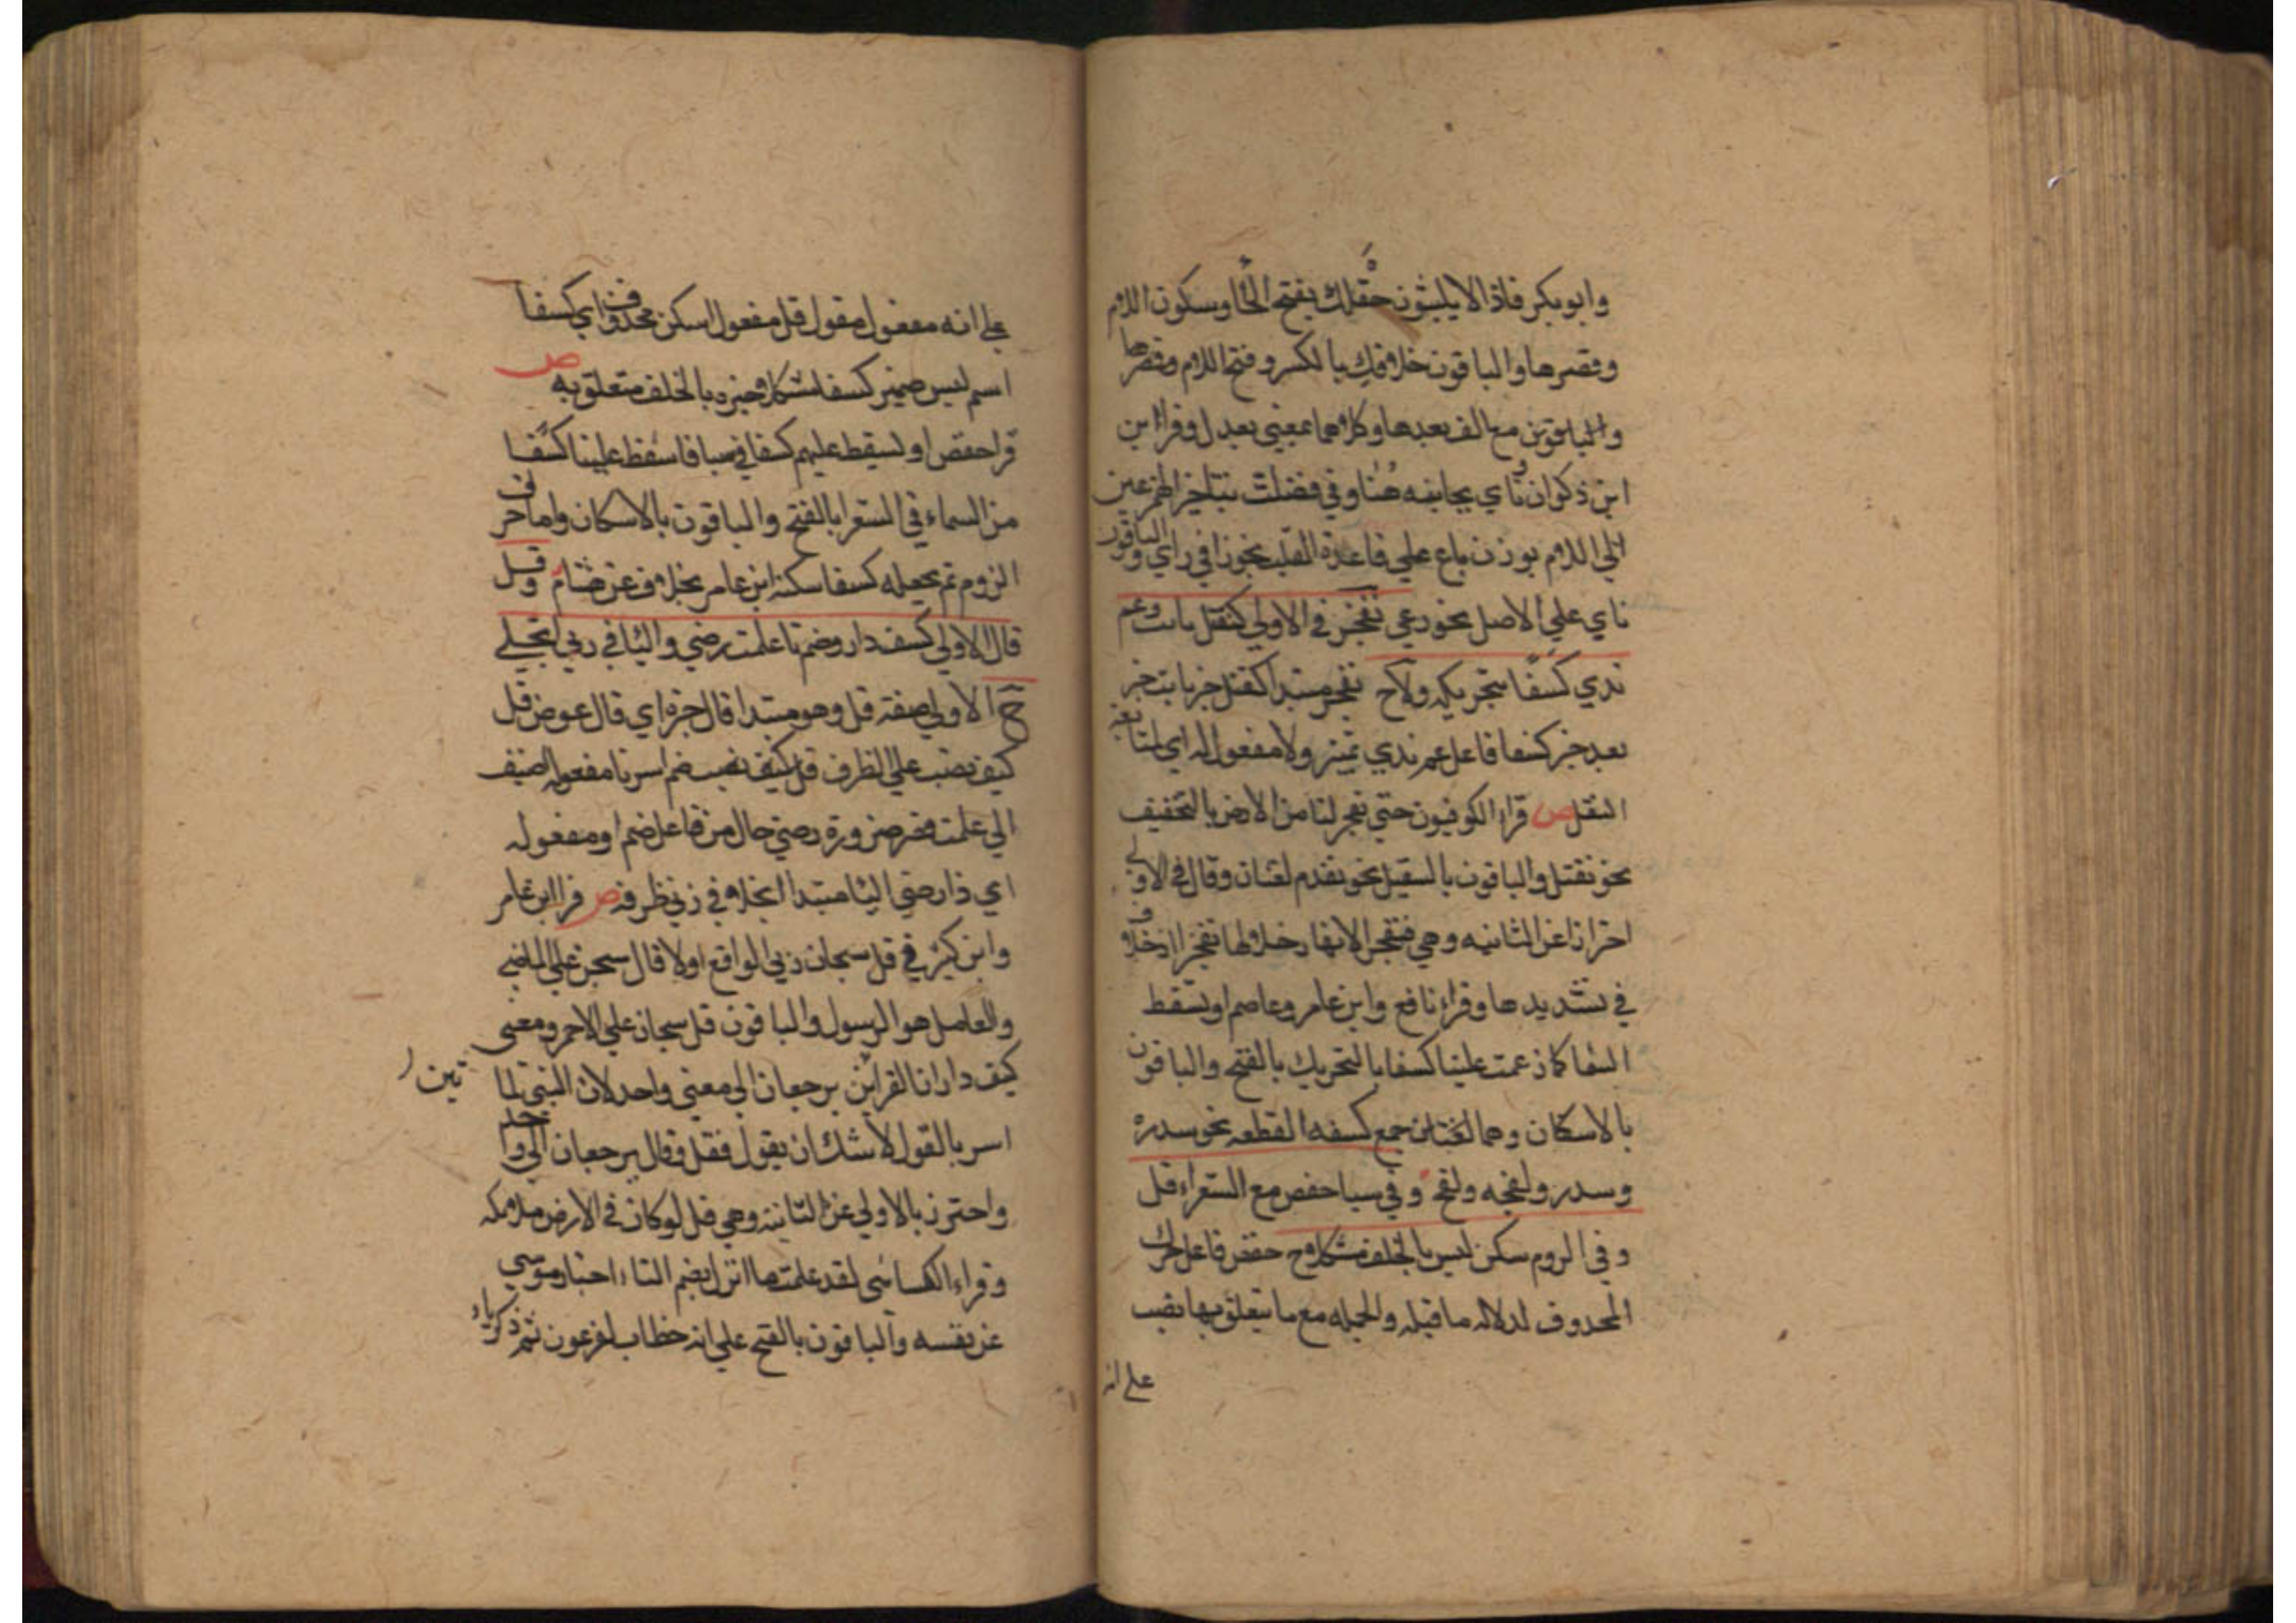 وابو بكر فاذا لا يلبثون خلفك بفتح الخا وسكون اللام
وقصرها والباقون خلافك بالكسر وفتح اللام وقصرها
مع الف بعدها وكلاهما بمعني بعدك وقرا ابن
ابن ذكوان ونأي بجانبه هنا وفي فصلت بتاخير الهمز عين
الي اللام بوزن باع علي قاعدة القلب نحو را في راي والباقون
ناي علي الاصل نحو رعي تفجر في الاولي كتقتل ثابت وعم
ندي كسفا بتحريكه ولاح تفجر مبتدا كتقتل خبر ثابت خبر
بعد خبر كسفا فاعل عم ندي تميز ولا مفعول له اي لمتابعة
النقل ص قراء الكوفيون حتي تفجر لنا من الارض بالتخفيف
نحو تقتل والباقون بالتثقيل نحو تقدم لغتان وقال في الاولي
احترازا عن الثانيه وهي فتفجر الانهار خلالها تفجيرا اذ لا خلاف
في تشديدها وقراء نافع وابن عامر وعاصم او تسقط
السما كما زعمت علينا كسفا بالتحريك بالفتح والباقون
بالاسكان وهما لغتان جمع كسفه القطعه نحو سدره
وسدر ولقحه ولقح وفي سبا حفص مع الشعراء قل
وفي الروم سكن ليس بالخلف مشكلا ح حفص فاعل حرك
المحدوف لدلاله ما قبله والجمله مع ما يتعلق بها نصب
علي انه
علي انه مفعول مقول قل مفعول اسكن محذوف اي كسفا
اسم ليس ضمير كسفا مشكلا خبره بالخلف متعلق به ص
قرا حفص او نسقط عليهم كسفا في سبا فاسقط علينا كسفا
من السماء في الشعرا بالفتح والباقون بالاسكان واما حرف
الروم ثم يجعله كسفا سكنه ابن عامر بخلاف عن هشام وقل
قال الاولي كيف دار وضم تا علمت رضي واليا في ربي انجلي
ح الاولي صفة قل وهو مبتدا قال خبره اي قال عوض قل
كيف نصب علي الظرف قل كيف نصب ضم امر تا مفعوله اضيف
الي علمت فقصر ضرورة رضي حال من فاعل ضم او مفعوله
اي ذا رضي اليا مبتدا انجلا في ربي ظرفه ص قرا ابن عامر
وابن كثير في قل سبحان ربي الواقع اولا قال سبحن علي الماضي
والعامل هو الرسول والباقون قل سبحان علي الامر ومعني
كيف دار ان القرائتين يرجعان الي معني واحد لان النبي لما
امر بالقول لا شك ان يقول فقل وقال يرجعان الي واحد
واحترز بالاولي عن الثانية وهي قل لو كان في الارض ملائكه
وقراء الكسائي لقد علمت ما انزل بضم التاء اخبار موسي
عن نفسه والباقون بالفتح علي انه خطاب لفرعون ثم ذكر ياء